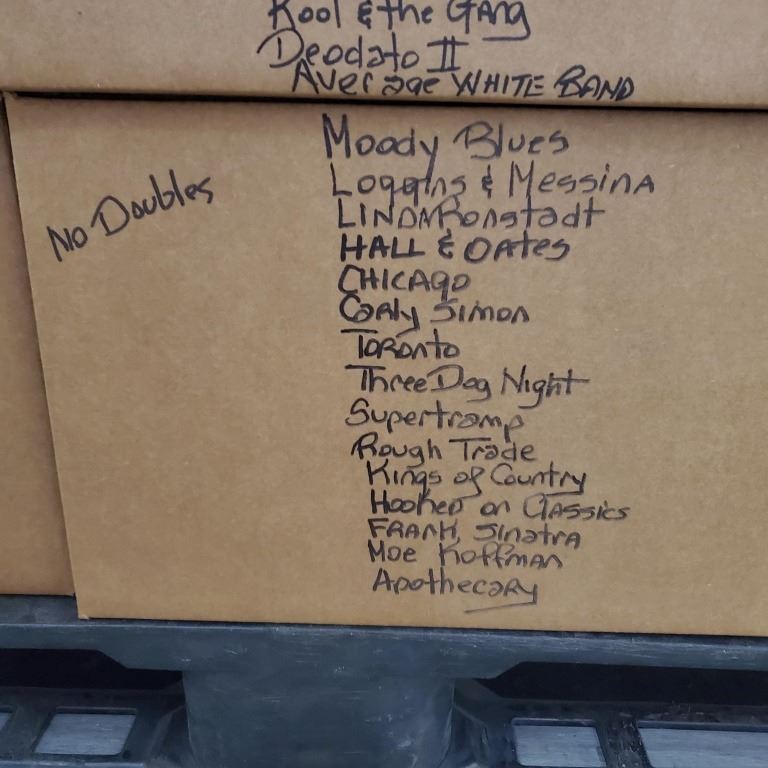 Kool & the Gang
Deodato II
Average WHITE BAND
Moody Blues
Loggins & Messina
LINDA Ronstadt
HALL & Oates
CHICAgo
Carly Simon
Toronto
Three Dog Night
Supertramp
Rough Trade
Kings of Country
Hooked on Classics
FRANK Sinatra
Moe Koffman
Apothecary
No Doubles